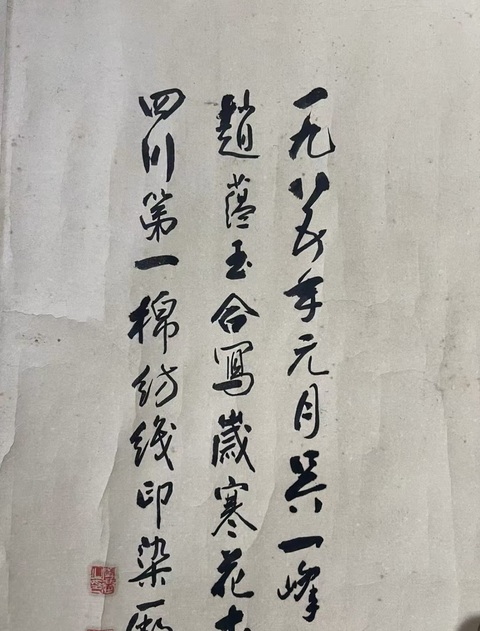 一九八五年元月吴一峰
趙蘊玉合寫歲寒花木
四川第一棉紡綫印染廠